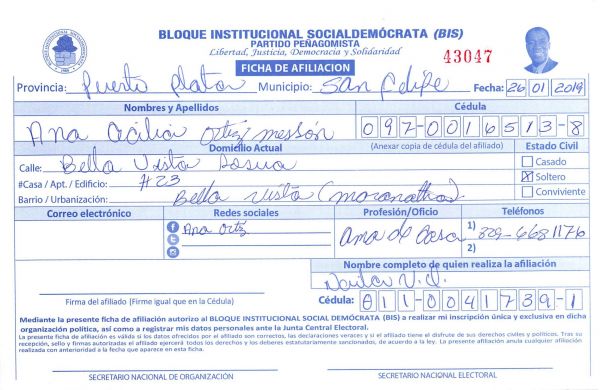 BLOQUE INSTITUCIONAL SOCIALDEMÓCRATA (BIS)
PARTIDO PEÑAGOMISTA
Libertad, Justicia, Democracia y Solidaridad
43047
FICHA DE AFILIACION
Provincia: Puerto Plata Municipio: San Felipe Fecha: 26 01 2019
Nombres y Apellidos Cédula
Ana Cecilia Ortiz Messón 097-0016513-8
Domicilio Actual (Anexar copia de cédula del afiliado) Estado Civil
Calle: Bella Vista Sosua Casado
#Casa / Apt. / Edificio: #23 X Soltero
Barrio / Urbanización: Bella Vista (Maranatha) Conviviente
Correo electrónico Redes sociales Profesión/Oficio Teléfonos
Ana Ortiz Ama de Casa 1) 829-6681176
2)
Nombre completo de quien realiza la afiliación
Firma del afiliado (Firme igual que en la Cédula) Cédula: 011-0041739-1
Mediante la presente ficha de afiliación autorizo al BLOQUE INSTITUCIONAL SOCIAL DEMÓCRATA (BIS) a realizar mi inscripción única y exclusiva en dicha
organización política, así como a registrar mis datos personales ante la Junta Central Electoral.
La presente ficha de afiliación es válida si los datos ofrecidos por el afiliado son correctos, las declaraciones veraces y si el afiliado tiene el disfrute de sus derechos civiles y políticos. Tras su
recepción, sello y firmas autorizadas el afiliado ejercerá todos los derechos y los deberes estatutariamente sancionados, de acuerdo a la ley. La presente afiliación anula cualquier afiliación
realizada con anterioridad a la fecha que aparece en esta ficha.
SECRETARIO NACIONAL DE ORGANIZACIÓN SECRETARIO NACIONAL ELECTORAL